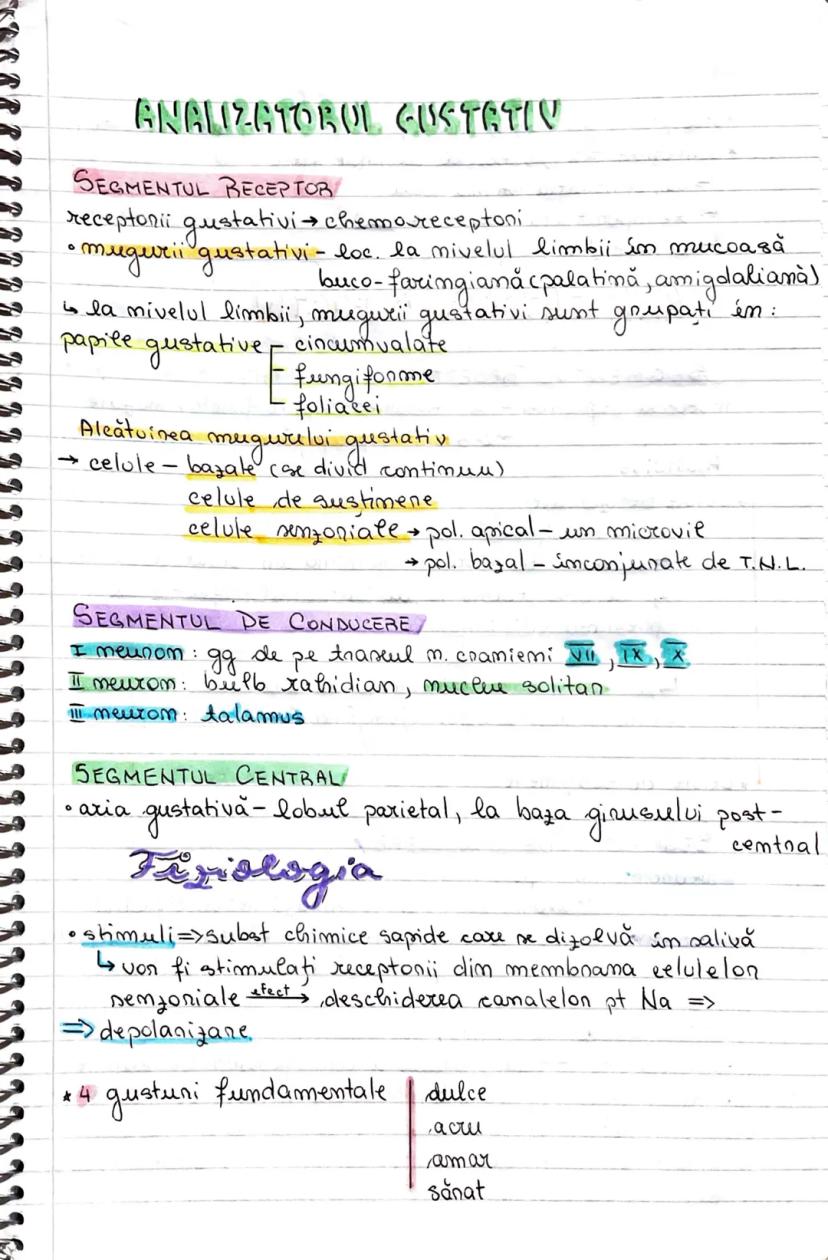 ANALIZATORUL GUSTATIV
SEGMENTUL RECEPTOR
receptorii gustativi → chemoreceptori
• mugurii gustativi - loc. la nivelul limbii în mucoasă
buco-faringiană (palatină, amigdaliană)
↳ la nivelul limbii, mugurii gustativi sunt grupați în:
papile gustative - circumvalate
- fungiforme
- foliacei
Alcătuirea mugurelui gustativ
→ celule - bazale (se divid continuu)
celule de susținere
celule senzoriale → pol. apical - un microvil
→ pol. bazal - înconjurate de T.N.L.
SEGMENTUL DE CONDUCERE
I neuron: gg de pe traseul n. cranieni VII, IX, X
II neuron: bulb rahidian, nucleu solitar
III neuron: talamus
SEGMENTUL CENTRAL
• aria gustativă - lobul parietal, la baza girusului post-
central
Fiziologia
• stimuli => subst chimice sapide care se dizolvă în salivă
↳ vor fi stimulați receptorii din membrana celulelor
senzoriale efect→ deschiderea canalelor pt Na =>
=> depolarizare
* 4 gusturi fundamentale | dulce
acru
amar
sărat